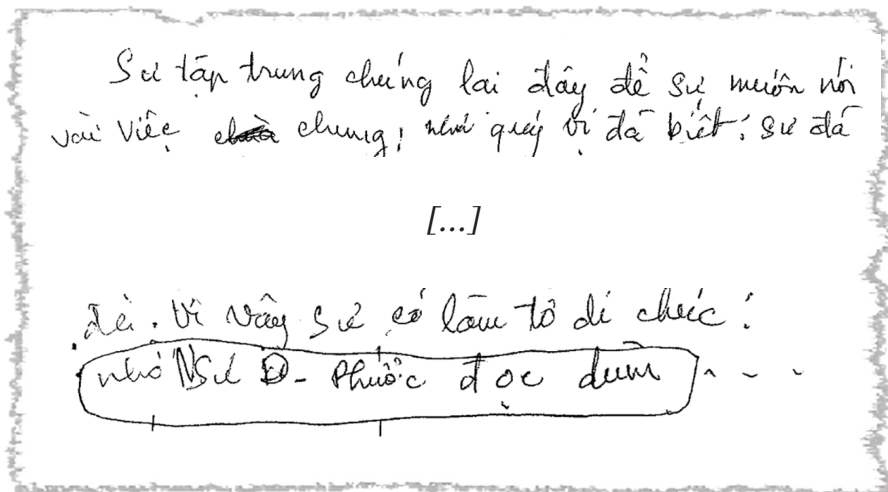 Sư tập trung chúng lại đây để sư muốn nói
vài việc chung; như quý vị đã biết: sư đã
[...]
đề. Vì vậy sư có làm tờ di chúc:
nhờ NSư Đ- Phước đọc dùm - - -